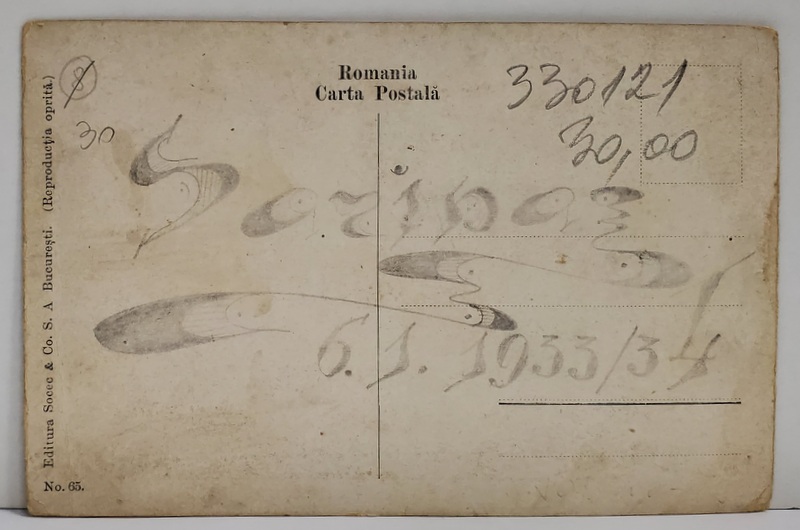 Romania
Carta Postală
330121
30,00
8
30
6. 1. 1933/34
Editura Socec & Co. S. A București. (Reproducția oprită.)
No. 65.